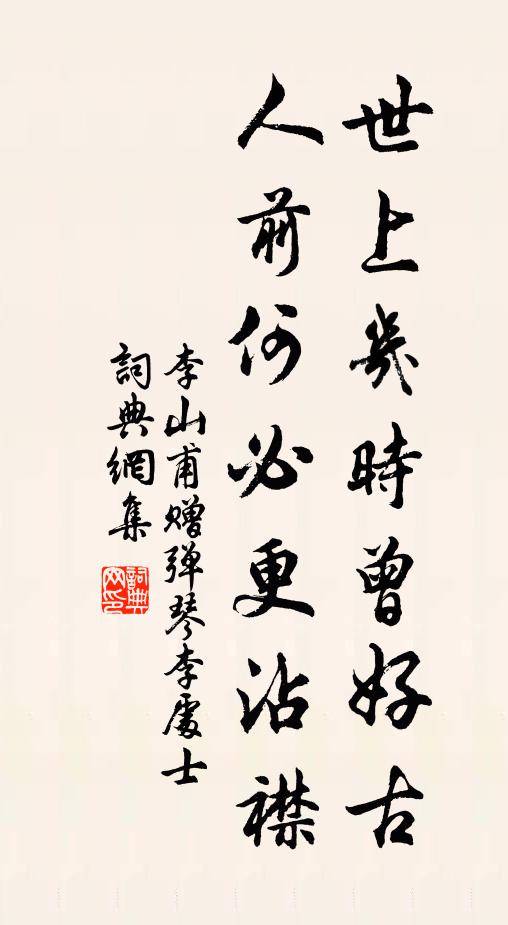 世上幾時曾好古
人前何必更沾襟
李山甫贈弾琴李處士
詞典網集
詞典網印